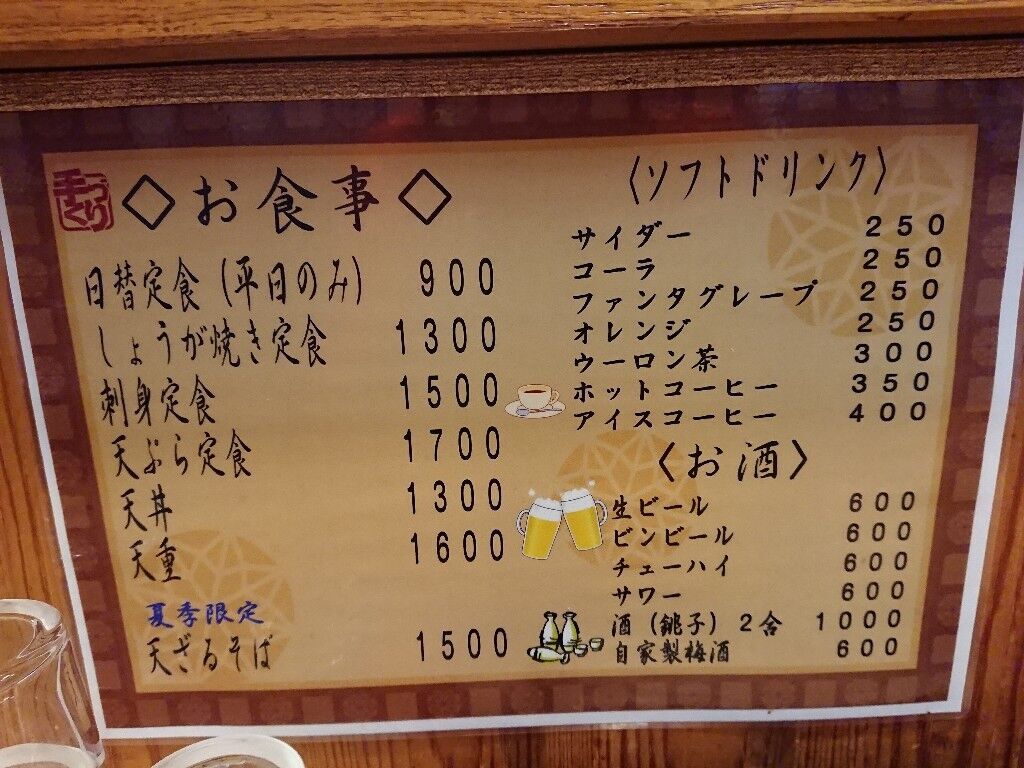 手づくり
◇お食事◇
日替定食（平日のみ） 900
しょうが焼き定食 1300
刺身定食 1500
天ぷら定食 1700
天丼 1300
天重 1600
夏季限定
天ざるそば 1500
〈ソフトドリンク〉
サイダー 250
コーラ 250
ファンタグレープ 250
オレンジ 250
ウーロン茶 300
ホットコーヒー 350
アイスコーヒー 400
〈お酒〉
生ビール 600
ビンビール 600
チューハイ 600
サワー 600
酒（銚子）２合 1000
自家製梅酒 600